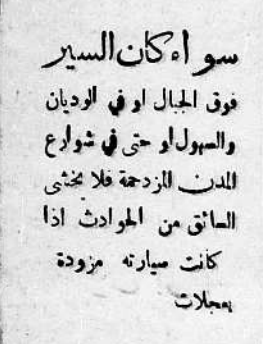 سواء كان السير
فوق الجبال او في الوديان
والسهول او حتى في شوارع
المدن المزدحمة فلا يخشى
السائق من الحوادث اذا
كانت سيارته مزودة
بعجلات